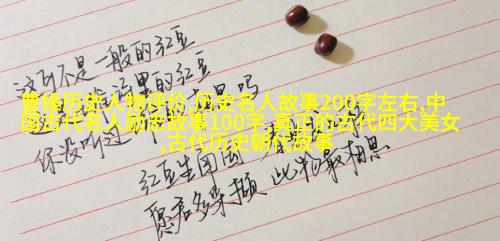 这可不是一般的红豆
这里的红豆
曹操历史人物评价,历史名人故事200字左右,中
国古代名人励志故事100字,真正的古代四大美女
,古代历史朝代故事
你没听过
吗
红豆生南国
愿君多采撷 此物最相思